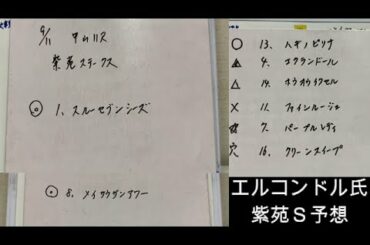 9/11 中山11R
紫苑ステークス
◎ 1. スルーセブンシーズ
◎ 8. メイサウザンアワー
○ 13. ハギノピリナ
▲ 4. エクランドール
△ 14. ホウオウラクセル
× 11. ファインルージュ
☆ 7. パーナルレディ
穴 16. クリーンスイープ
エルコンドル氏
紫苑S予想